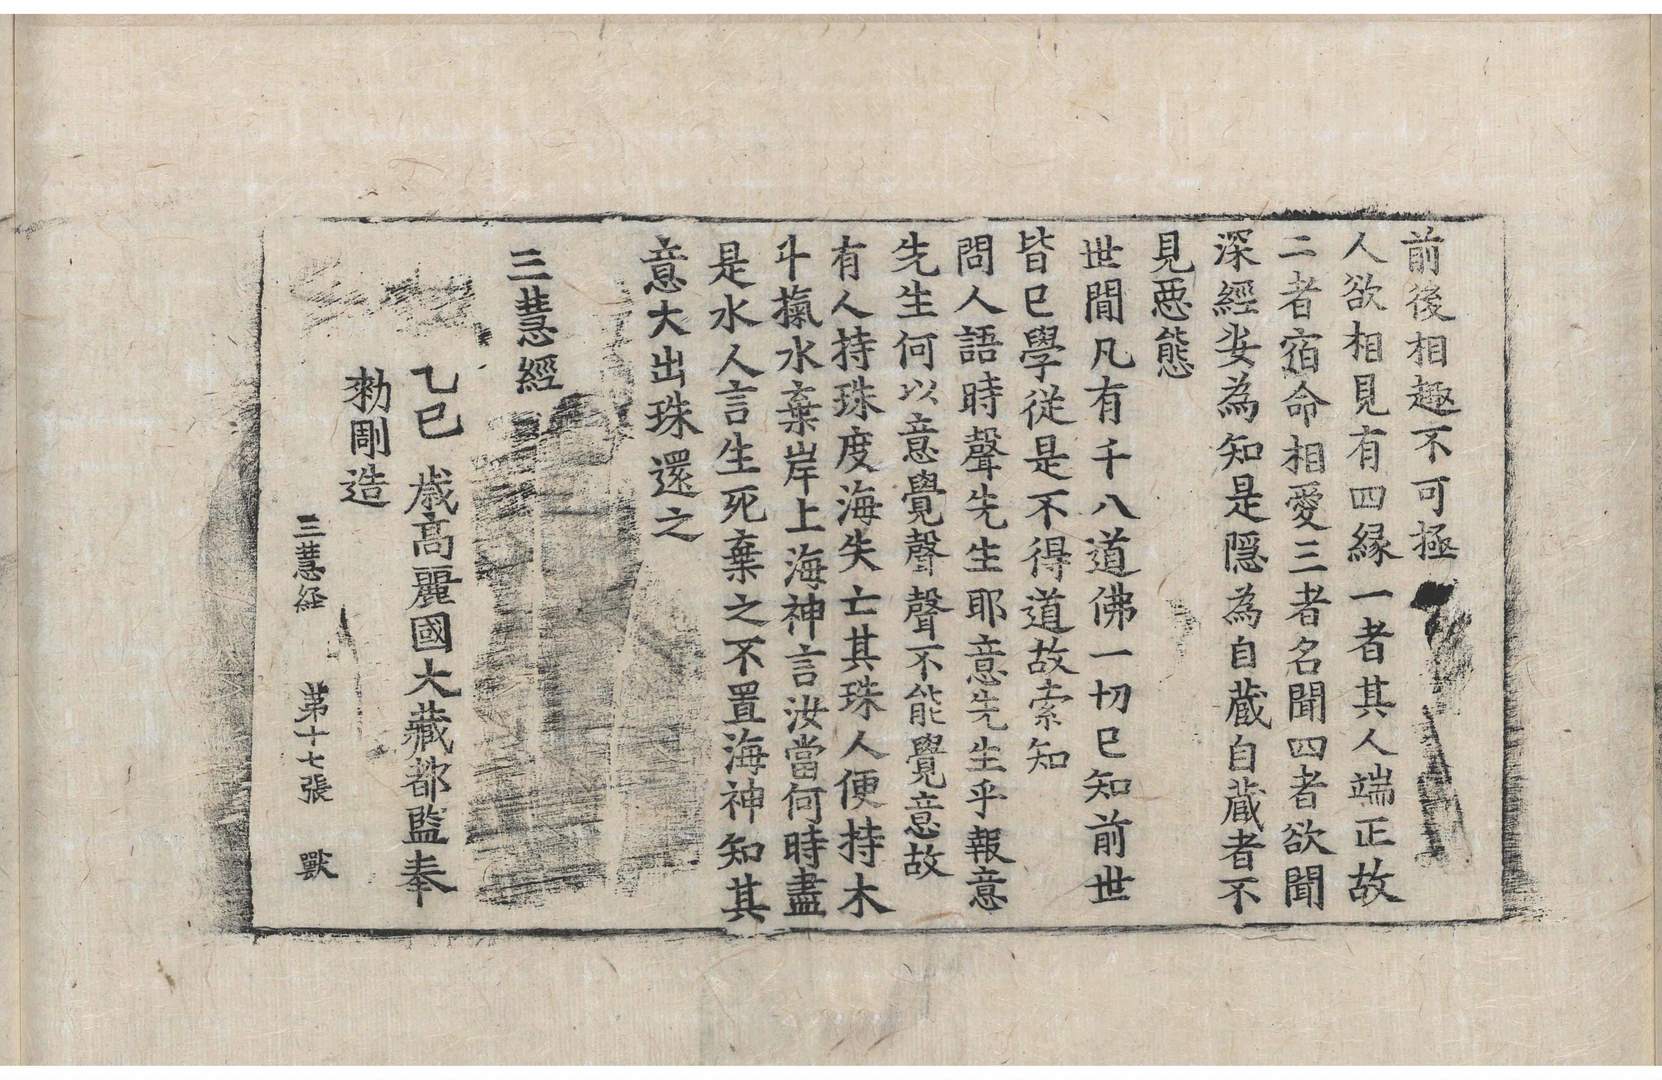 前後相趣不可極
人欲相見有四緣一者其人端正故
二者宿命相愛三者名聞四者欲聞
深經要為知是隱為自蔵自蔵者不
見惡態
世間凡有千八道佛一切已知前世
皆已學從是不得道故索知
問人語時聲先生耶意先生乎報意
先生何以意覺聲聲不能覺意故
有人持珠度海失亡其珠人便持木
斗㨶水棄岸上海神言汝當何時盡
是水人言生死棄之不置海神知其
意大出珠還之
三慧經
乙巳歳高麗國大藏都監奉
勑彫造
三慧経 第十七張 獸